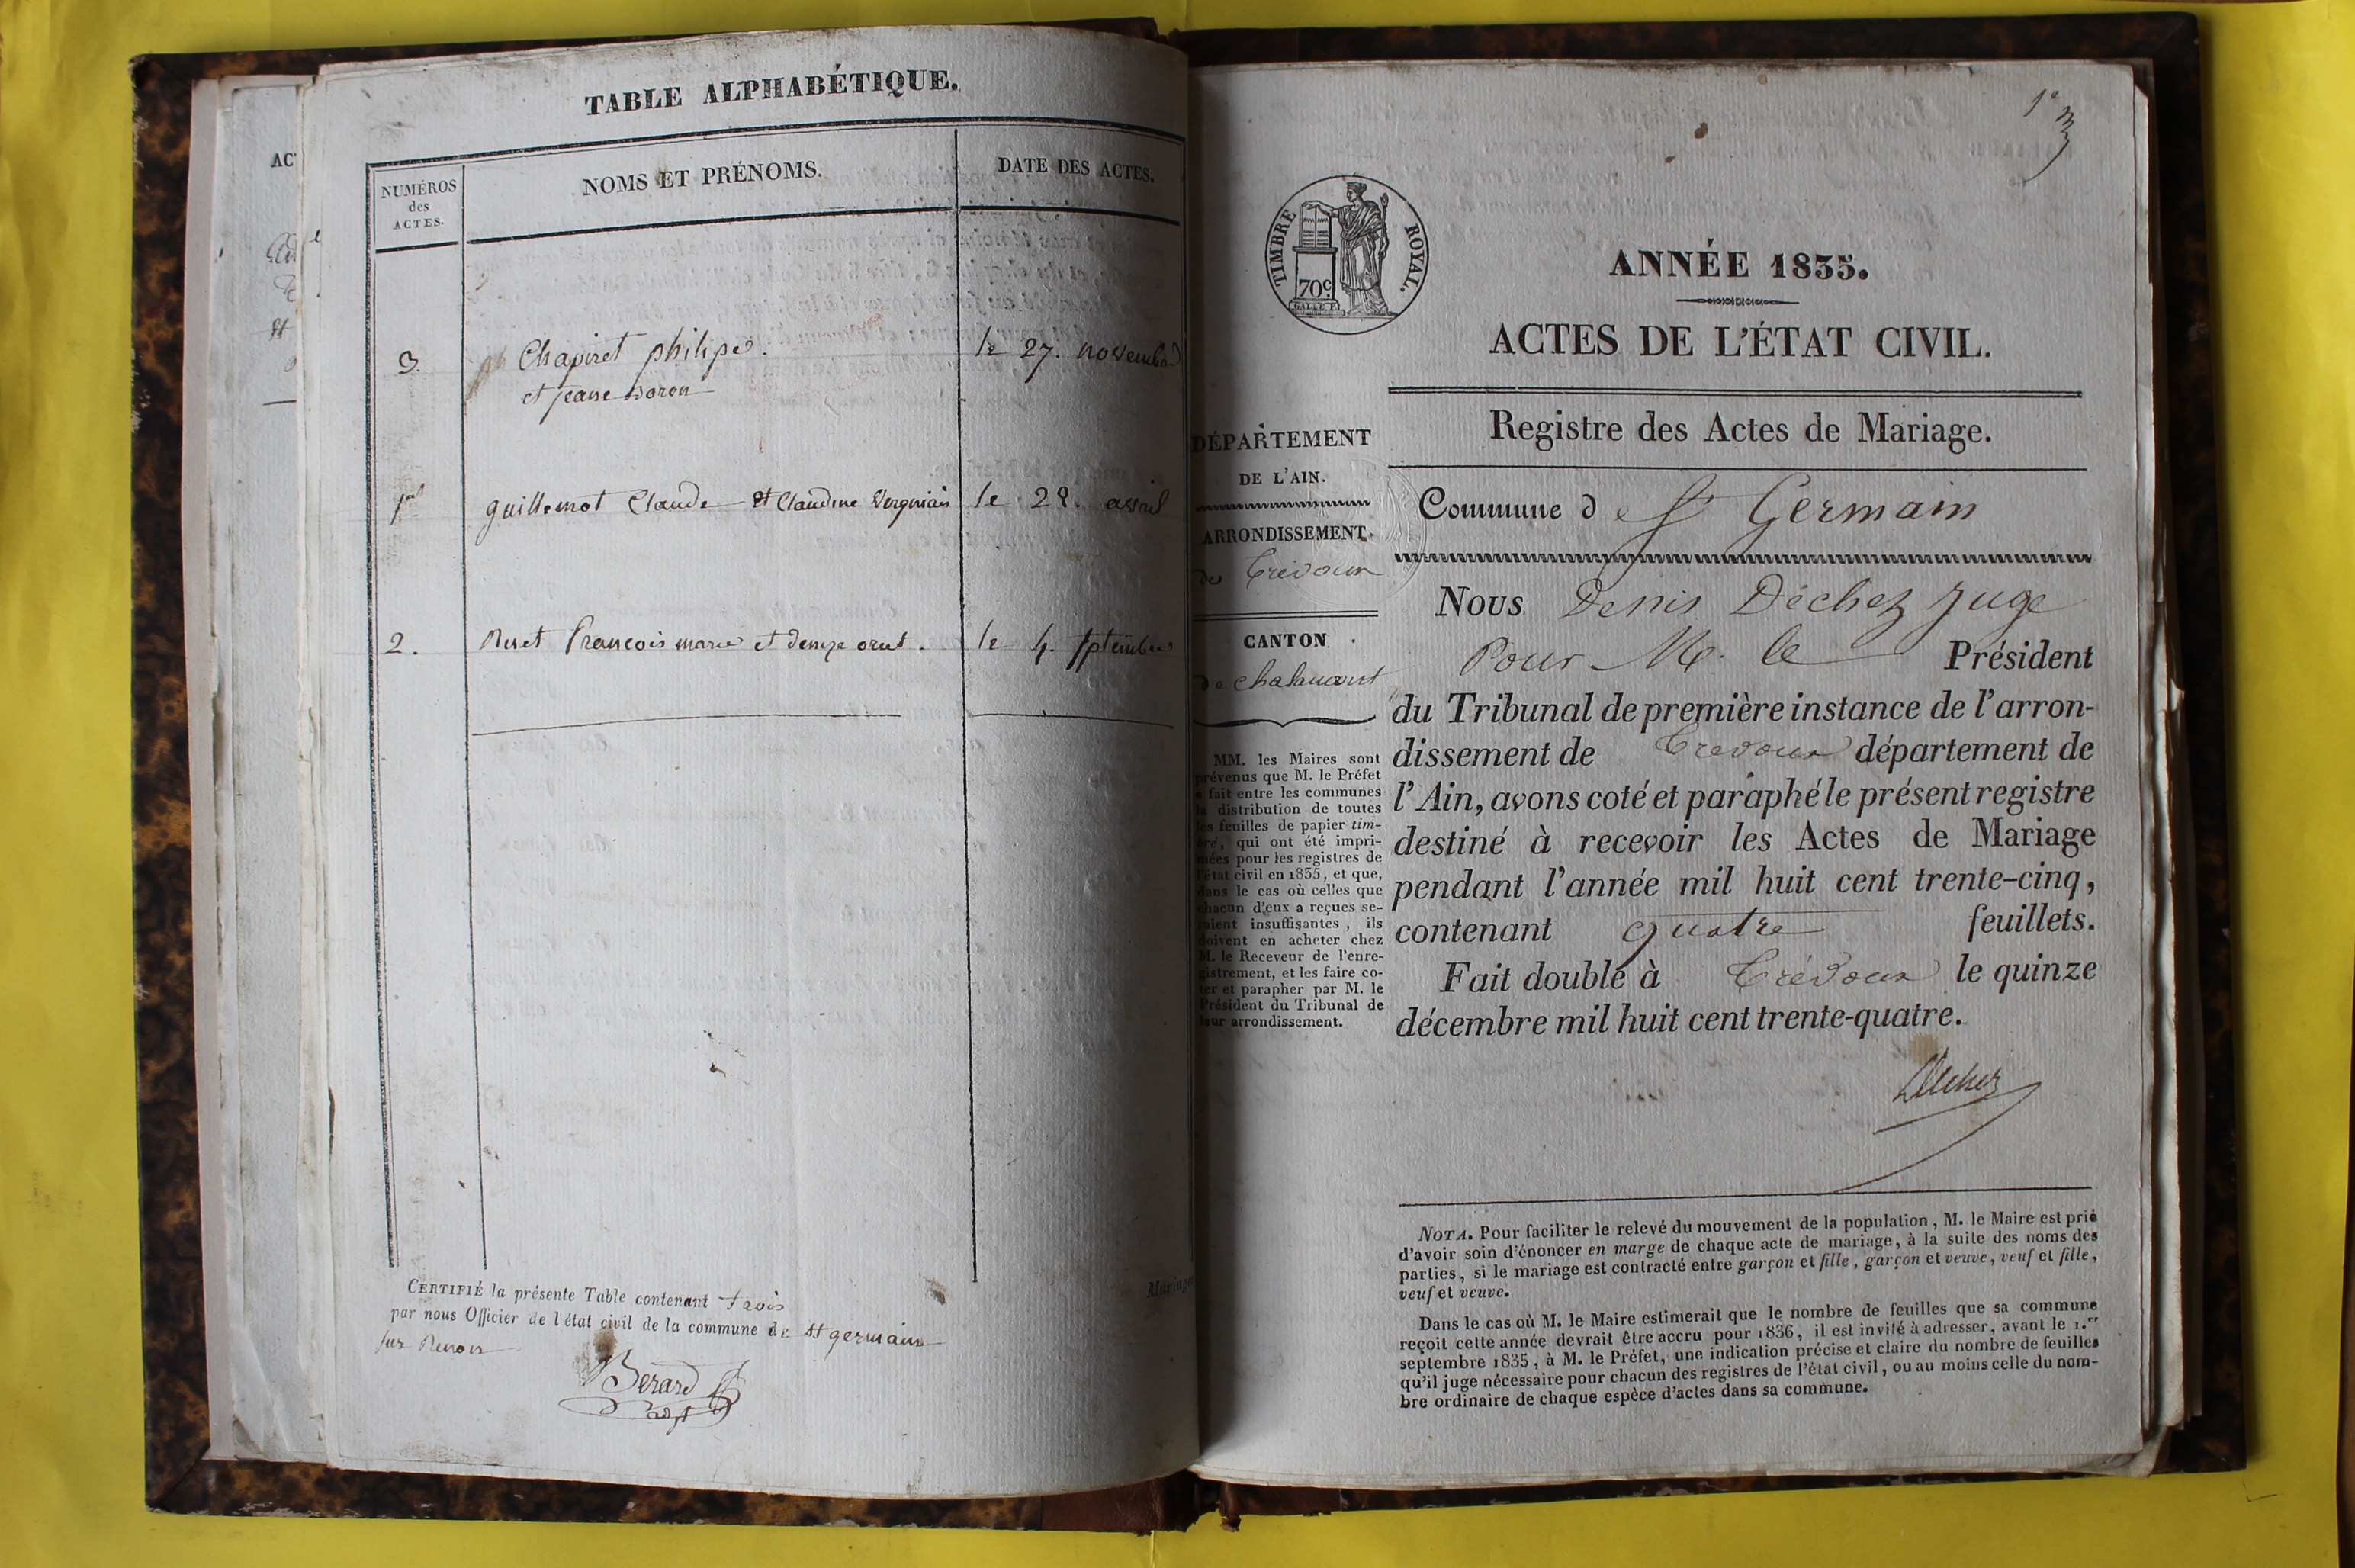 AC
TABLE ALPHABÉTIQUE.
NUMÉROS
des
ACTES.
NOMS ET PRÉNOMS.
DATE DES ACTES.
3. Chapiret philipe. le 27. novembre
et jeane
1er guillemot Claude et Claudine le 28. avril
2. francois marie et denize le 4. septembre
CERTIFIÉ la présente Table contenant trois
par nous Officier de l'état civil de la commune de St germain
sur Renon
Berard
adjt
Mariages
1er
TIMBRE ROYAL.
70c
ANNÉE 1835.
ACTES DE L'ÉTAT CIVIL.
Registre des Actes de Mariage.
DÉPARTEMENT
DE L'AIN.
ARRONDISSEMENT
de Trévoux
CANTON
de chalamont
MM. les Maires sont
prévenus que M. le Préfet
a fait entre les communes
la distribution de toutes
les feuilles de papier tim-
bré, qui ont été impri-
mées pour les registres de
l'état civil en 1835, et que,
dans le cas où celles que
chacun d'eux a reçues se-
raient insuffisantes, ils
doivent en acheter chez
M. le Receveur de l'enre-
gistrement, et les faire co-
ter et parapher par M. le
Président du Tribunal de
leur arrondissement.
Commune de St Germain
Nous Denis Déchez juge
Pour M. le Président
du Tribunal de première instance de l'arron-
dissement de Trévoux département de
l'Ain, avons coté et paraphé le présent registre
destiné à recevoir les Actes de Mariage
pendant l'année mil huit cent trente-cinq,
contenant quatre feuillets.
Fait double à Trévoux le quinze
décembre mil huit cent trente-quatre.
Déchez
NOTA. Pour faciliter le relevé du mouvement de la population, M. le Maire est prié
d'avoir soin d'énoncer en marge de chaque acte de mariage, à la suite des noms des
parties, si le mariage est contracté entre garçon et fille, garçon et veuve, veuf et fille,
veuf et veuve.
Dans le cas où M. le Maire estimerait que le nombre de feuilles que sa commune
reçoit cette année devrait être accru pour 1836, il est invité à adresser, avant le 1.er
septembre 1835, à M. le Préfet, une indication précise et claire du nombre de feuilles
qu'il juge nécessaire pour chacun des registres de l'état civil, ou au moins celle du nom-
bre ordinaire de chaque espèce d'actes dans sa commune.